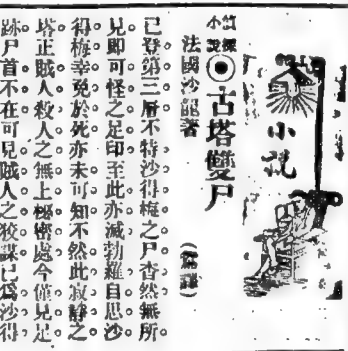 小說
偵探
小說
◉古塔雙尸
法國沙龍著
已登第三層不特沙得梅之尸杳然無所
見即可怪之足印至此亦滅勃羅自思沙
得梅幸免於死亦未可知不然此寂靜之
塔正賊人殺人之無上秘密處今僅見足
跡尸首不在可見賊人之狡謀已爲沙得